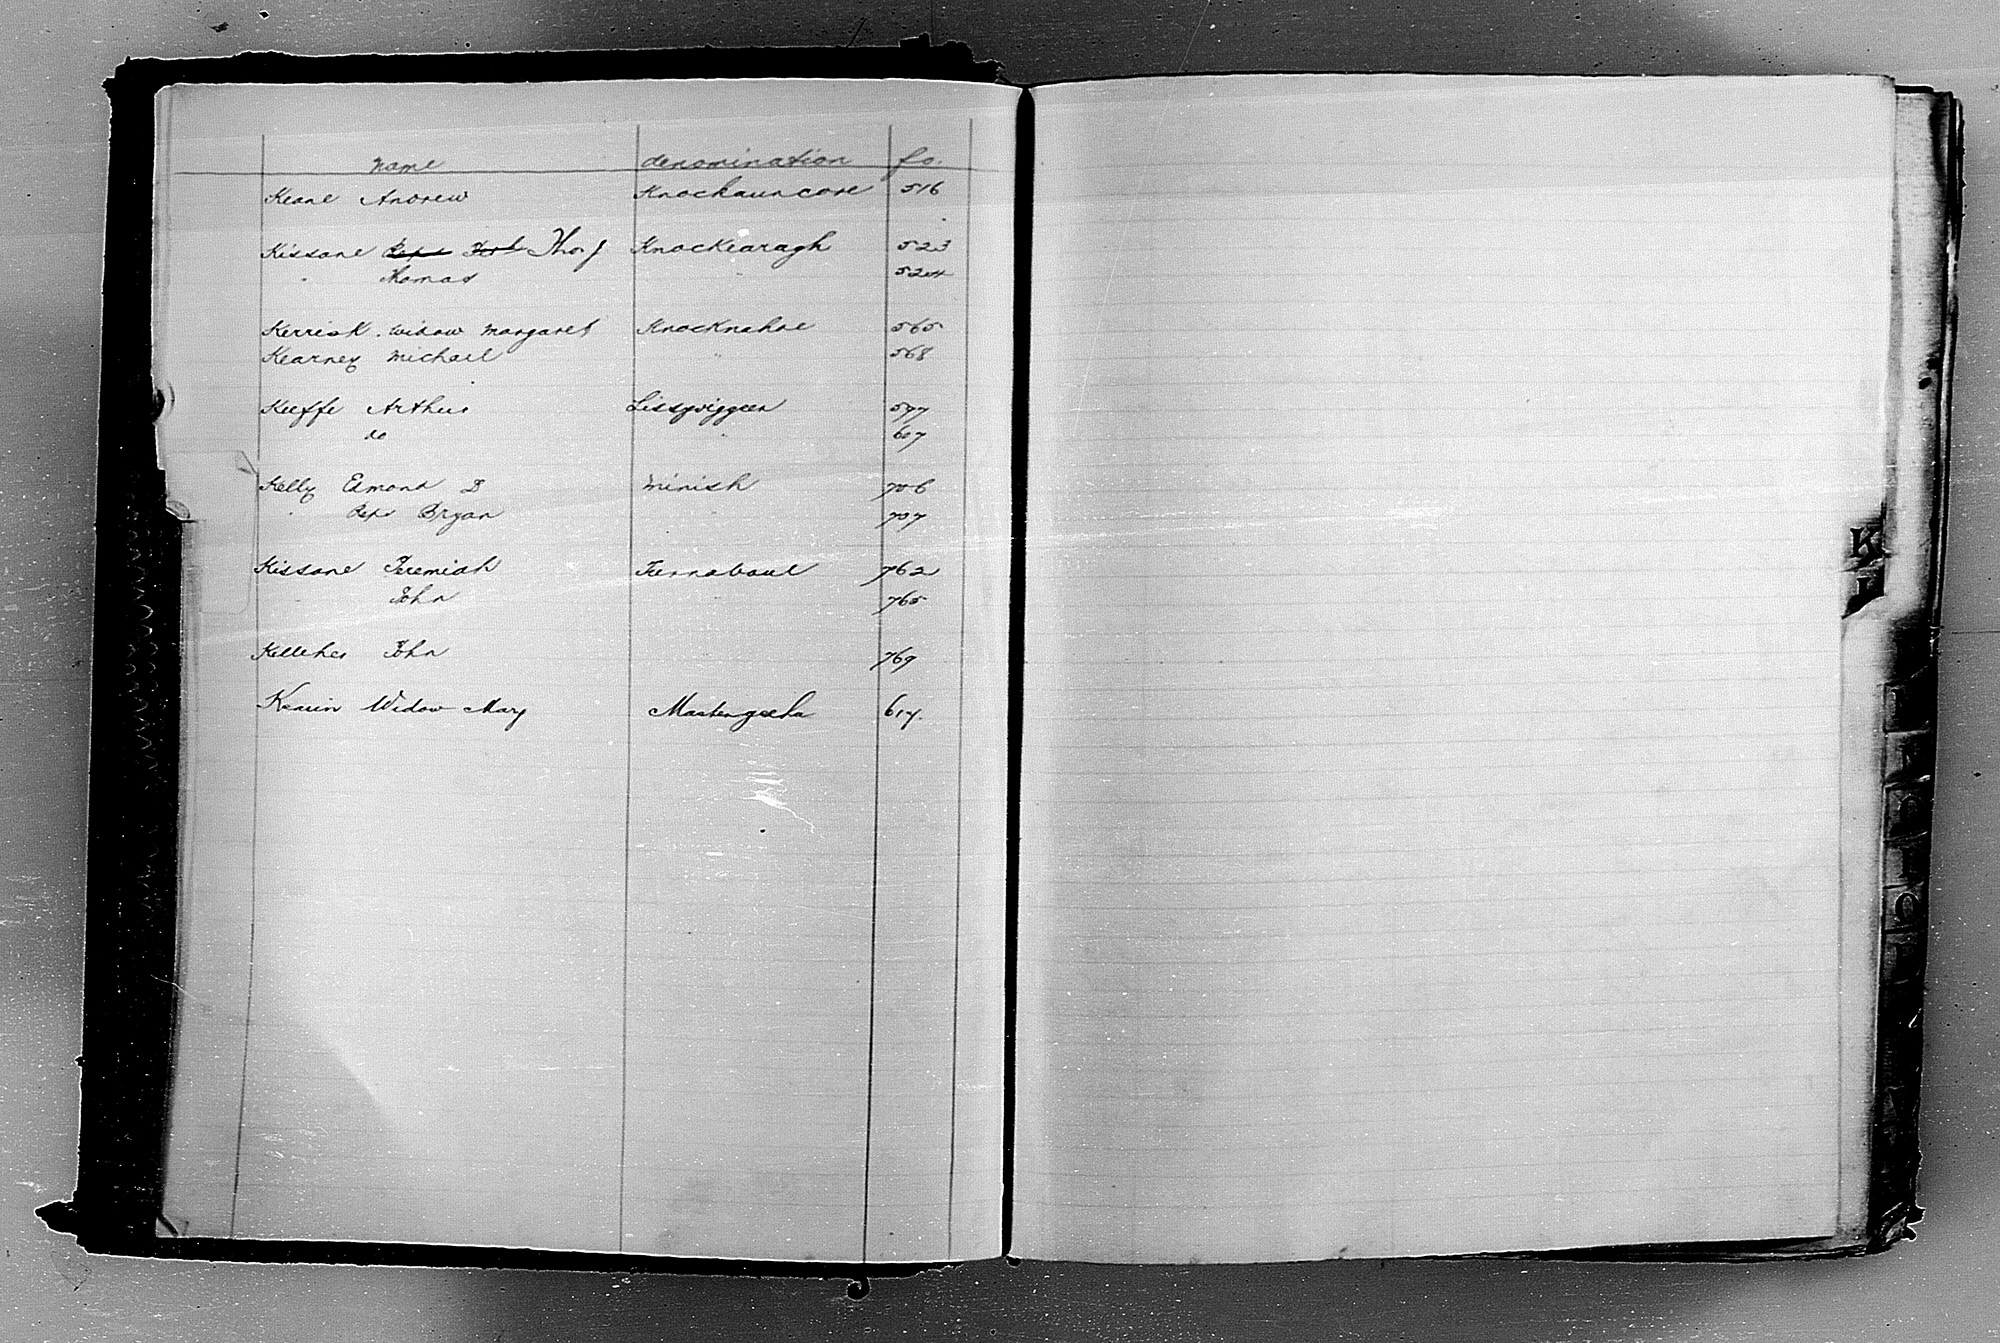 name denomination fo.
Keane Andrew Knockauncore 516
Kissane Thos J Knockearagh 523
" Thomas " 524
Kerrisk widow margaret Knocknahoe 565
Kearney michael " 568
Keeffe Arthur Lissyviggeen 577
do " 607
Kelly Edmond D minish 706
" Reps Bryan " 707
Kissane Jeremiah Tiernaboul 762
" John " 765
Kelleher John 769
Widow Mary Mastergeeha 617.
K